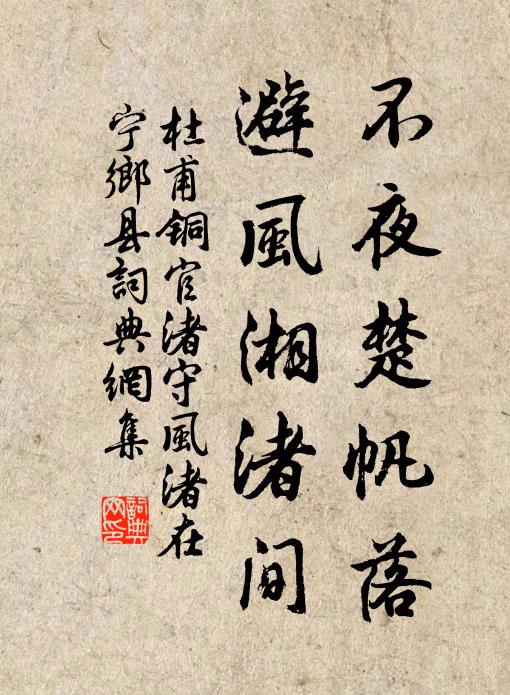 不夜楚帆落
避風湘渚間
杜甫铜官渚守風渚在
宁鄉县詞典網集
詞典网印